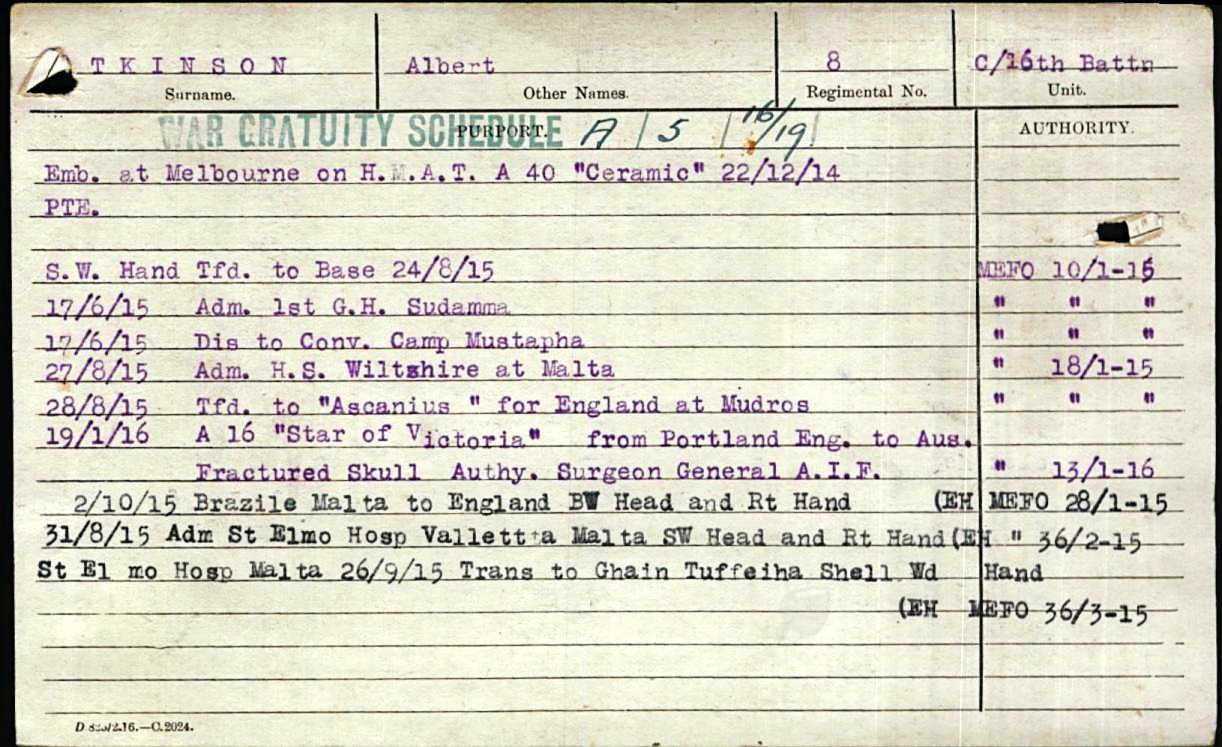 TKINSON Albert 8 C/16th Battn
Surname. Other Names. Regimental No. Unit.
WAR GRATUITY SCHEDULE A / 5 / 16/19/
PURPORT. AUTHORITY.
Emb. at Melbourne on H.M.A.T. A 40 "Ceramic" 22/12/14
PTE.
S.W. Hand Tfd. to Base 24/8/15 MEFO 10/1-15
17/6/15 Adm. 1st G.H. Sudamma " " "
17/6/15 Dis to Conv. Camp Mustapha " " "
27/8/15 Adm. H.S. Wiltshire at Malta " 18/1-15
28/8/15 Tfd. to "Ascanius " for England at Mudros " " "
19/1/16 A 16 "Star of Victoria" from Portland Eng. to Aus.
Fractured Skull Authy. Surgeon General A.I.F. " 13/1-16
2/10/15 Brazile Malta to England BW Head and Rt Hand (EH MEFO 28/1-15
31/8/15 Adm St Elmo Hosp Vallettta Malta SW Head and Rt Hand (EH " 36/2-15
St El mo Hosp Malta 26/9/15 Trans to Ghain Tuffeiha Shell Wd Hand
(EH MEFO 36/3-15